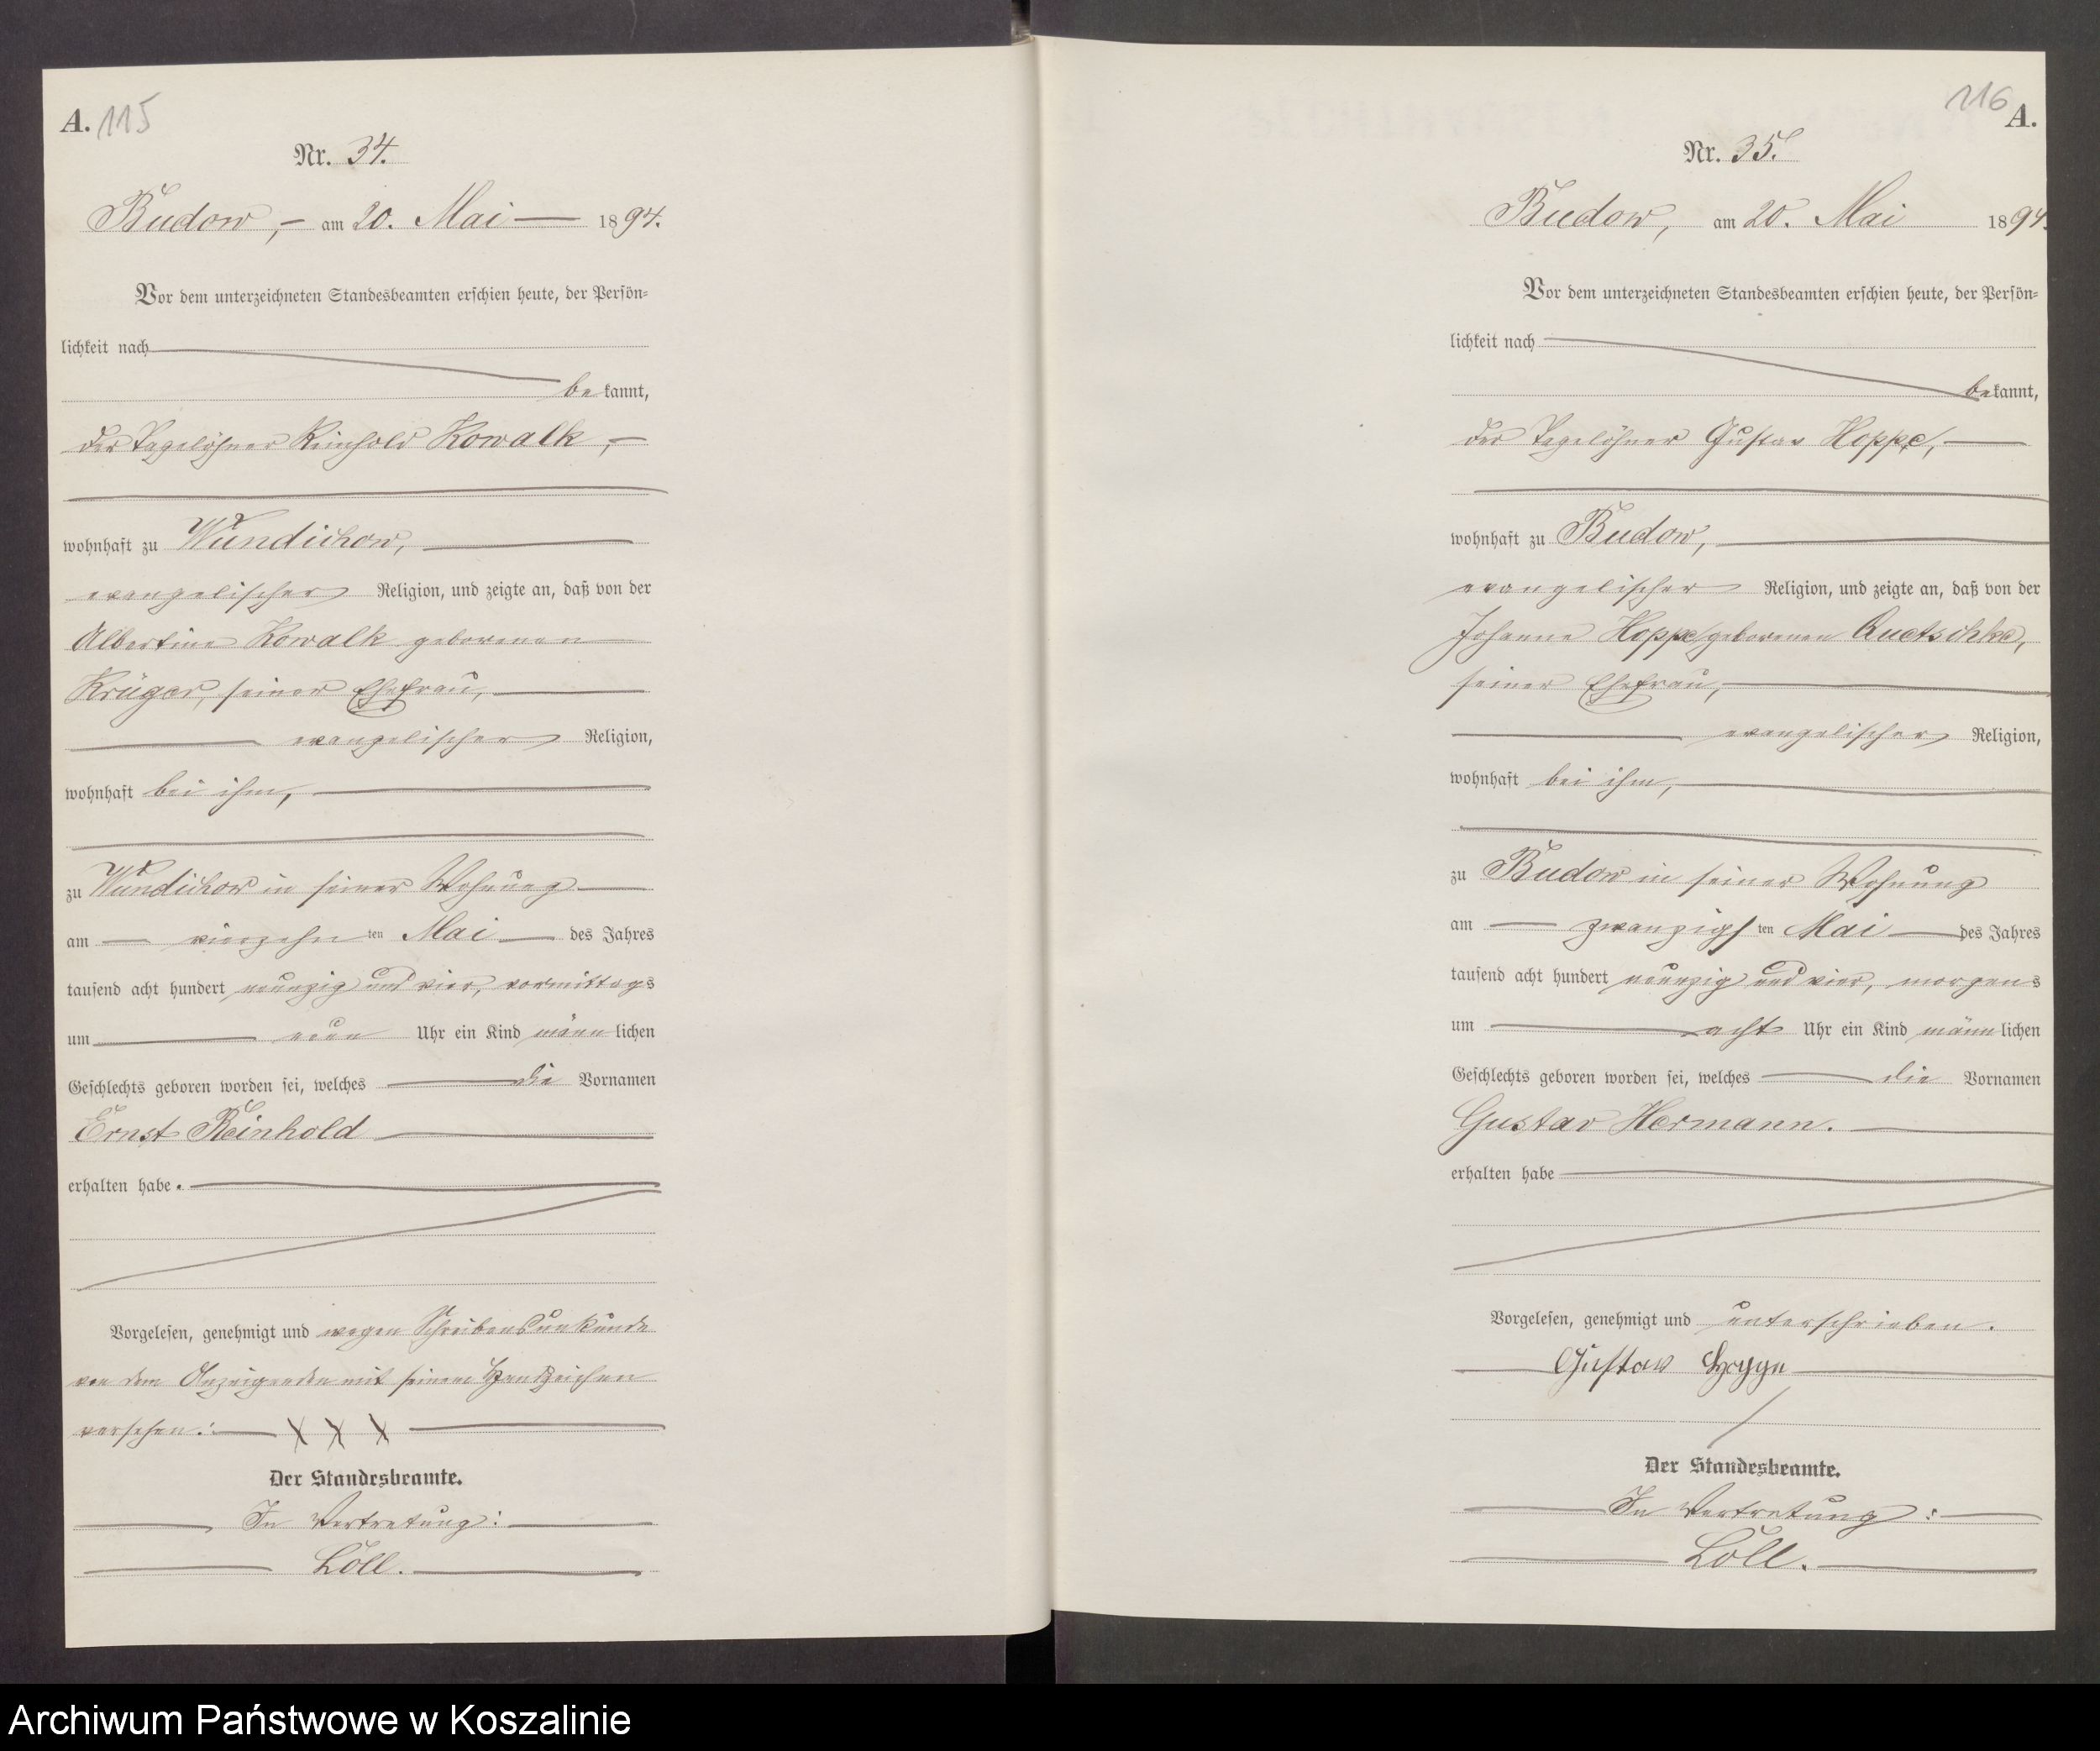 A. 115
Nr. 34.
Budow, am 20. Mai 1894.
Vor dem unterzeichneten Standesbeamten erschien heute, der Persön=
lichkeit nach
bekannt,
der Tagelöhner Reinhold Kowalk,
wohnhaft zu Wundichow,
evangelischer Religion, und zeigte an, daß von der
Albertine Kowalk geborenen
Krüger, seiner Ehefrau,
evangelischer Religion,
wohnhaft bei ihm,
zu Wundichow in seiner Wohnung
am vierzehn ten Mai des Jahres
tausend acht hundert neunzig und vier, vormittags
um neun Uhr ein Kind männlichen
Geschlechts geboren worden sei, welches die Vornamen
Ernst Reinhold
erhalten habe.
Vorgelesen, genehmigt und wegen Schreibensunkunde
von dem Anzeigenden mit seinem Handzeichen
versehen: X X X
Der Standesbeamte.
In Vertretung:
Löll.
116 A.
Nr. 35.
Budow, am 20. Mai 1894.
Vor dem unterzeichneten Standesbeamten erschien heute, der Persön=
lichkeit nach
bekannt,
der Tagelöhner Gustav Hoppe,
wohnhaft zu Budow,
evangelischer Religion, und zeigte an, daß von der
Johanne Hoppe geborenen Quetschke,
seiner Ehefrau,
evangelischer Religion,
wohnhaft bei ihm,
zu Budow in seiner Wohnung
am zwanzigs ten Mai des Jahres
tausend acht hundert neunzig und vier, morgens
um acht Uhr ein Kind männlichen
Geschlechts geboren worden sei, welches die Vornamen
Gustav Hermann.
erhalten habe
Vorgelesen, genehmigt und unterschrieben.
Gustav Hoppe
Der Standesbeamte.
In Vertretung:
Löll.
Archiwum Państwowe w Koszalinie